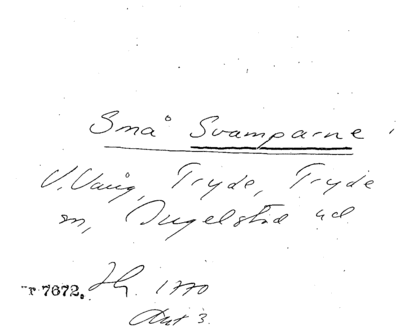 Små Svamparne
V. Vång, Tryde, Tryde
sn, Ingelstad hd
r 7672. Jh. 1770
Akt 3.